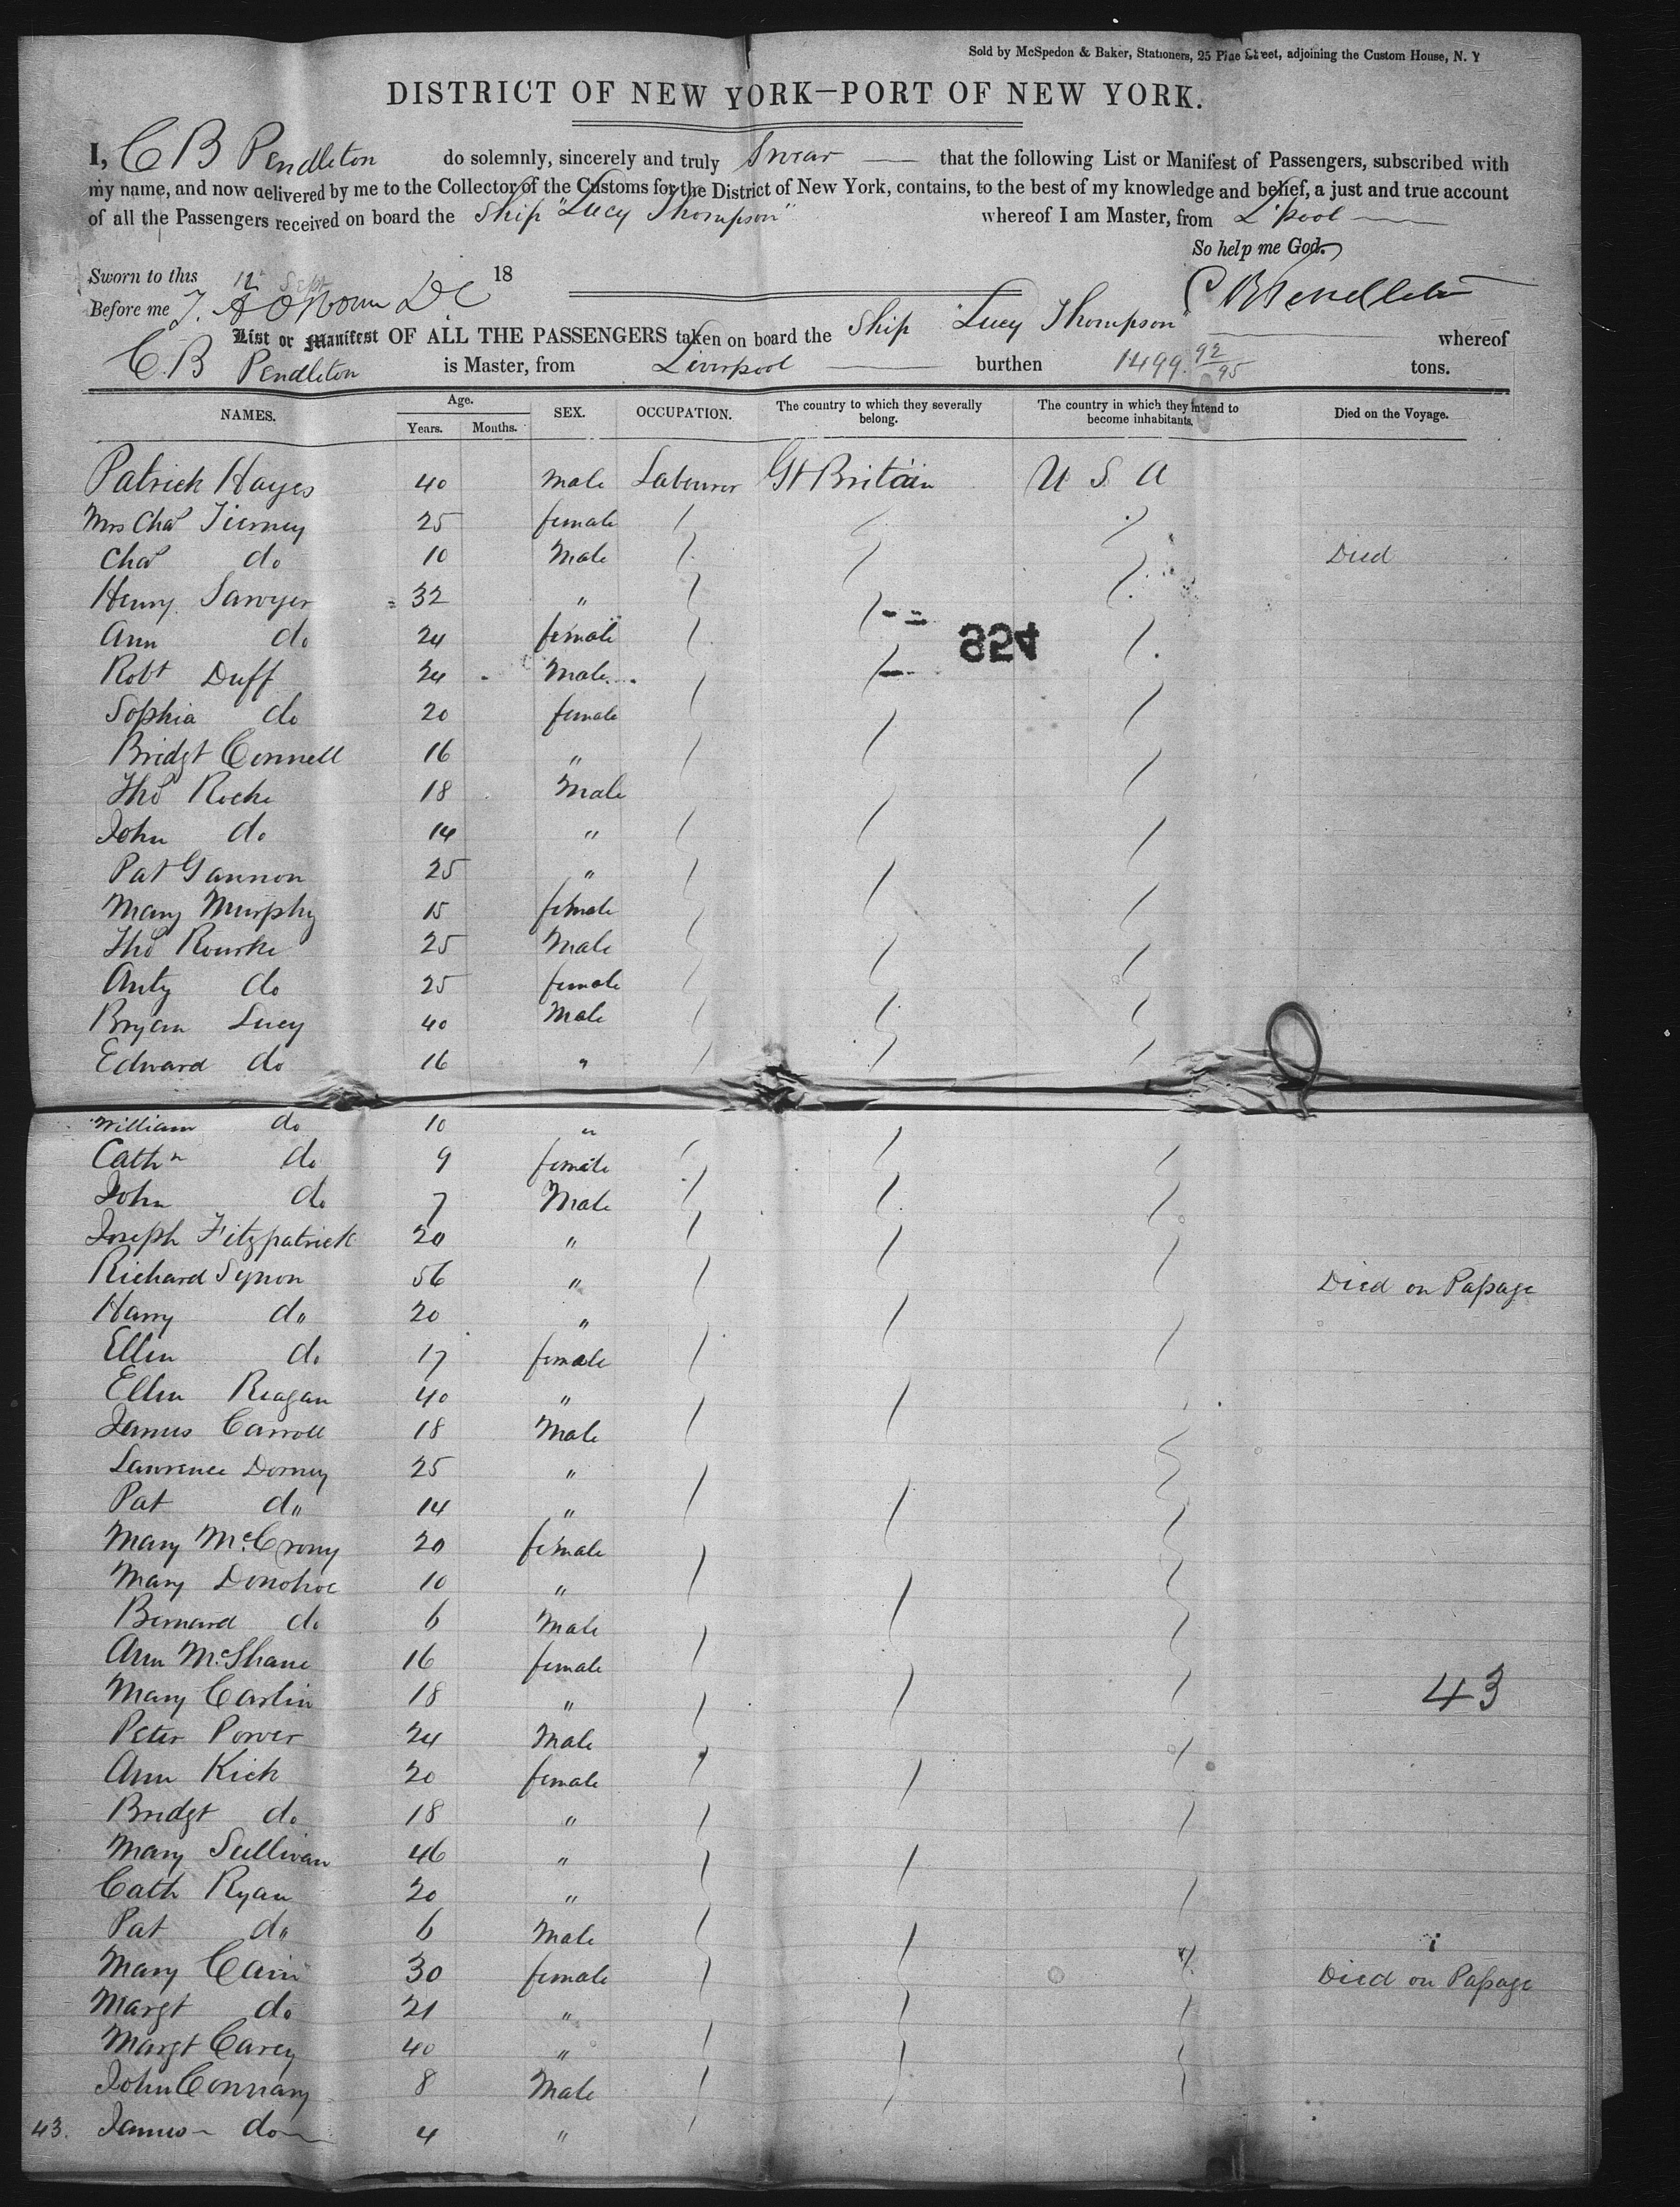 Sold by McSpedon & Baker, Stationers, 25 Pine Street, adjoining the Custom House, N. Y
DISTRICT OF NEW YORK—PORT OF NEW YORK.
I, C B Pendleton do solemnly, sincerely and truly Swear that the following List or Manifest of Passengers, subscribed with
my name, and now delivered by me to the Collector of the Customs for the District of New York, contains, to the best of my knowledge and belief, a just and true account
of all the Passengers received on board the Ship "Lucy Thompson" whereof I am Master, from L'pool
So help me God.
Sworn to this 12 Sept 18
C B Pendleton
Before me
List or Manifest OF ALL THE PASSENGERS taken on board the Ship "Lucy Thompson" whereof
C. B Pendleton is Master, from Liverpool burthen 1499 92/95 tons.
NAMES. Age. Years. Months. SEX. OCCUPATION. The country to which they severally belong. The country in which they intend to become inhabitants. Died on the Voyage.
Patrick Hayes 40 male Labourer Gt Britain U S A
Mrs Chas Tierney 25 female
Chas do 10 Male Died
Henry Sawyer 32 "
Ann do 24 female
824
Robt Duff 24 Male
Sophia do 20 female
Bridgt Connell 16 "
Thos Roche 18 Male
John do 14 "
Pat Gannon 25 "
Mary Murphy 15 female
Thos Rourke 25 Male
Anty do 25 female
Bryan Lucy 40 Male
Edward do 16 "
William do 10 "
Cathn do 9 female
John do 7 Male
Joseph Fitzpatrick 20 "
Richard Synon 56 " Died on Passage
Harry do 20 "
Ellen do 17 female
Ellen Reagan 40 "
James Carroll 18 Male
Lawrence Dorney 25 "
Pat do 14 "
Mary McCrony 20 female
Mary Donohoe 10 "
Bernard do 6 Male
Ann McShane 16 female
Mary Carlin 18 " 43
Peter Power 24 Male
Ann Kick 20 female
Bridgt do 18 "
Mary Sullivan 46 "
Cath Ryan 20 "
Pat do 6 Male
Mary Cain 30 female Died on Passage
Margt do 21 "
Margt Carey 40 "
John Connary 8 Male
43. James do 4 "